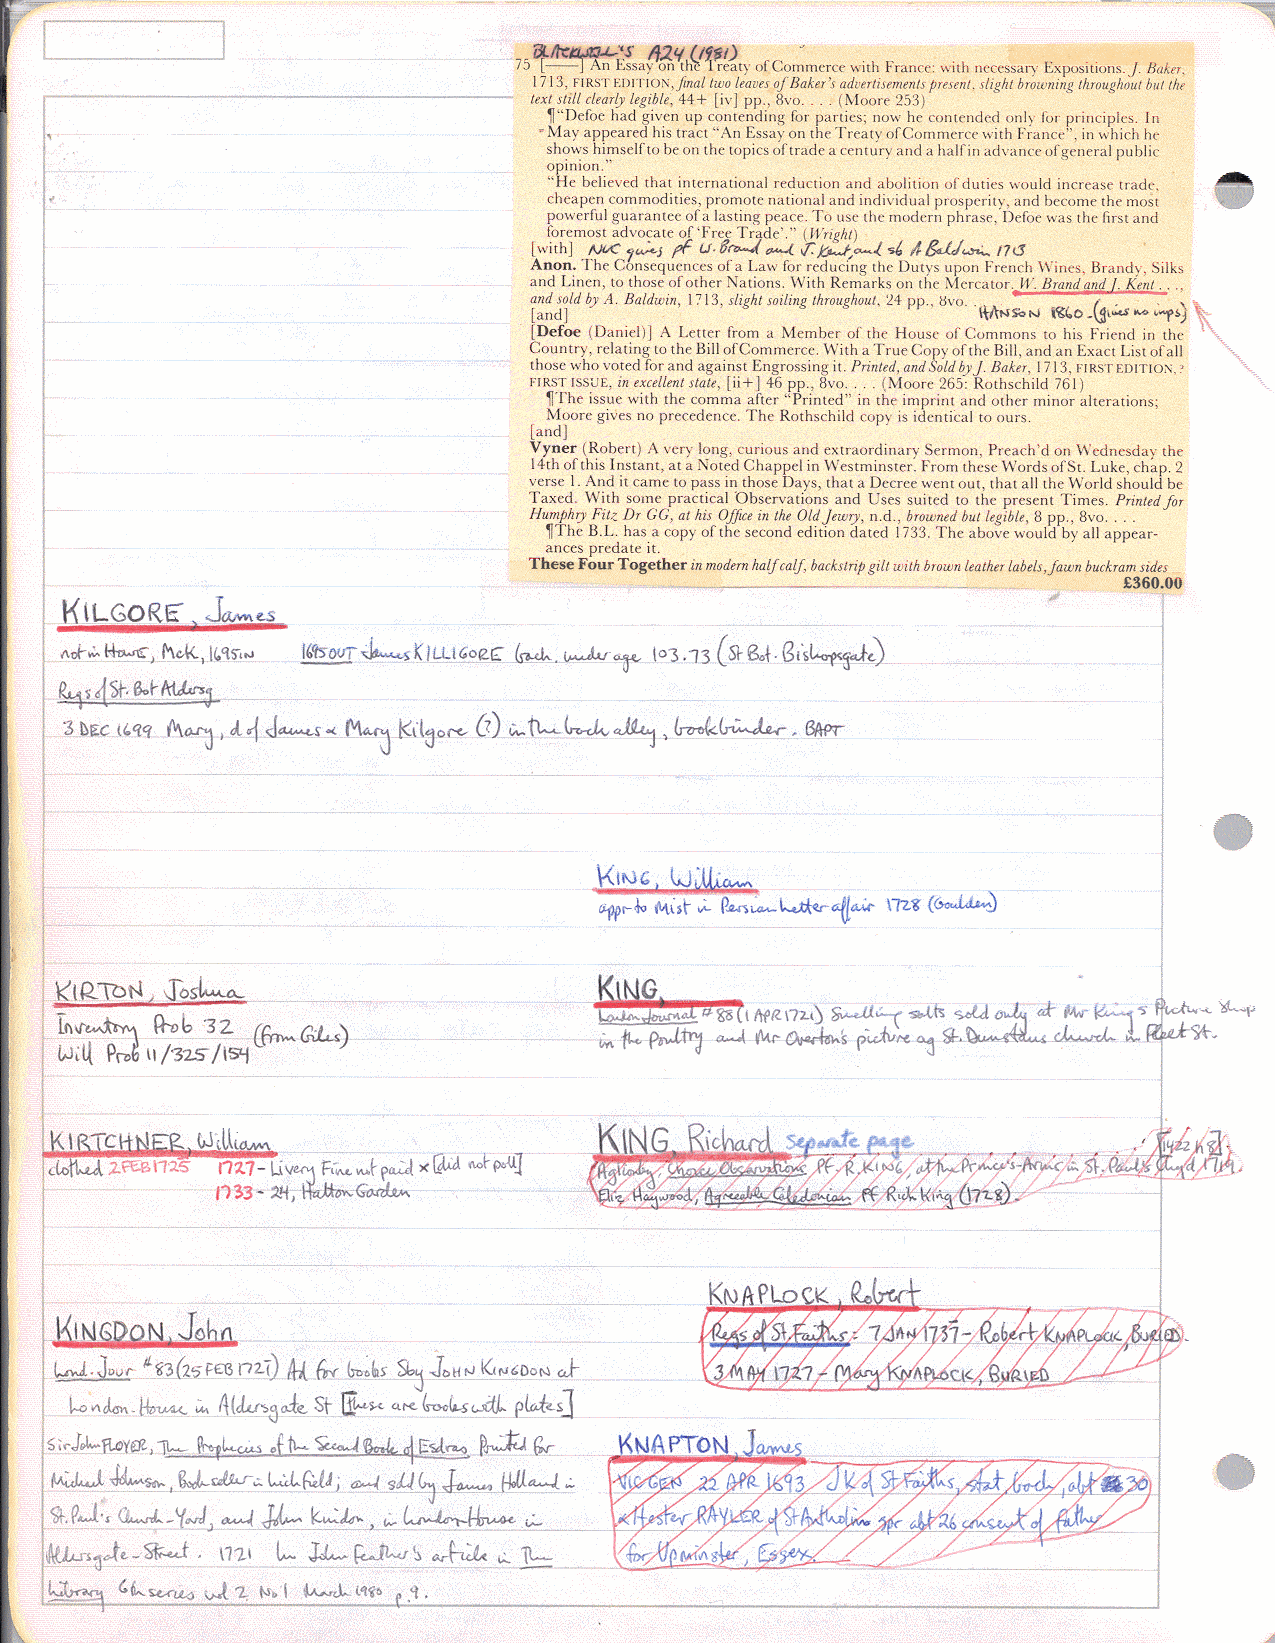 BLACKWELL'S A24 (1981)
75 [——] An Essay on the Treaty of Commerce with France: with necessary Expositions. J. Baker,
1713, FIRST EDITION, final two leaves of Baker's advertisements present, slight browning throughout but the
text still clearly legible, 44+ [iv] pp., 8vo. . . . (Moore 253)
¶“Defoe had given up contending for parties; now he contended only for principles. In
May appeared his tract “An Essay on the Treaty of Commerce with France”, in which he
shows himself to be on the topics of trade a century and a half in advance of general public
opinion.”
“He believed that international reduction and abolition of duties would increase trade,
cheapen commodities, promote national and individual prosperity, and become the most
powerful guarantee of a lasting peace. To use the modern phrase, Defoe was the first and
foremost advocate of ‘Free Trade’.” (Wright)
[with] NUC gives pf W. Brand and J. Kent, and sb A Baldwin 1713
Anon. The Consequences of a Law for reducing the Dutys upon French Wines, Brandy, Silks
and Linen, to those of other Nations. With Remarks on the Mercator. W. Brand and J. Kent . . .,
and sold by A. Baldwin, 1713, slight soiling throughout, 24 pp., 8vo. . .
[and] HANSON 1860 - (gives no imps)
[Defoe (Daniel)] A Letter from a Member of the House of Commons to his Friend in the
Country, relating to the Bill of Commerce. With a True Copy of the Bill, and an Exact List of all
those who voted for and against Engrossing it. Printed, and Sold by J. Baker, 1713, FIRST EDITION, ?
FIRST ISSUE, in excellent state, [ii+] 46 pp., 8vo. . . . (Moore 265: Rothschild 761)
¶The issue with the comma after “Printed” in the imprint and other minor alterations;
Moore gives no precedence. The Rothschild copy is identical to ours.
[and]
Vyner (Robert) A very long, curious and extraordinary Sermon, Preach'd on Wednesday the
14th of this Instant, at a Noted Chappel in Westminster. From these Words of St. Luke, chap. 2
verse 1. And it came to pass in those Days, that a Decree went out, that all the World should be
Taxed. With some practical Observations and Uses suited to the present Times. Printed for
Humphry Fitz Dr GG, at his Office in the Old Jewry, n.d., browned but legible, 8 pp., 8vo. . . .
¶The B.L. has a copy of the second edition dated 1733. The above would by all appear-
ances predate it.
These Four Together in modern half calf, backstrip gilt with brown leather labels, fawn buckram sides
£360.00
KILGORE, James
not in Howe, McK, 1695IN 1695OUT James KILLIGORE bach. under age 103.73 (St Bot. Bishopsgate)
Regs of St. Bot Aldersg
3 DEC 1699 Mary, d of James & Mary Kilgore (?) in the back alley, bookbinder. BAPT
KING, William
appr to Mist in Persian Letter affair 1728 (Goulden)
KIRTON, Joshua
Inventory Prob 32 (from Giles)
Will Prob 11/325/154
KING,
London Journal #88 (1 APR 1721) Smelling salts sold only at Mr King's Picture Shop
in the Poultry and Mr Overton's picture ag St. Dunstans church in Fleet St.
KIRTCHNER, William
clothed 2 FEB 1725 1727 - Livery Fine not paid x [did not poll]
1733 - 24, Hatton Garden
KING, Richard Separate page
[1422 h 8].
Aglionby, Choice Observations PF. R. KING, at the Prince's-Arms in St. Paul's Chyd 1719.
Eliz Haywood, Agreeable Caledonian PF Rich King (1728).
KINGDON, John
Lond. Jour #83 (25 FEB 1721) Ad for books Sby JOHN KINGDON at
London-House in Aldersgate St [these are books with plates]
Sir John FLOYER, The Prophecies of the Second Book of Esdras Printed for
Michael Johnson, Bookseller in Lichfield; and sold by James Holland in
St. Paul's Church-Yard, and John Kindon, in London-House in
Aldersgate-Street. 1721 In John Feather's article in The
Library 6th series vol 2 No 1 March 1980 p.9.
KNAPLOCK, Robert
Regs of St. Faiths: 7 JAN 1737 - Robert KNAPLOCK, BURIED.
3 MAY 1727 - Mary KNAPLOCK, BURIED
KNAPTON, James
VIC GEN 22 APR 1693 JK of St Faiths, stat bach, abt 30
& Hester RAYLER of St Antholins spr abt 26 consent of father
for Upminster, Essex.